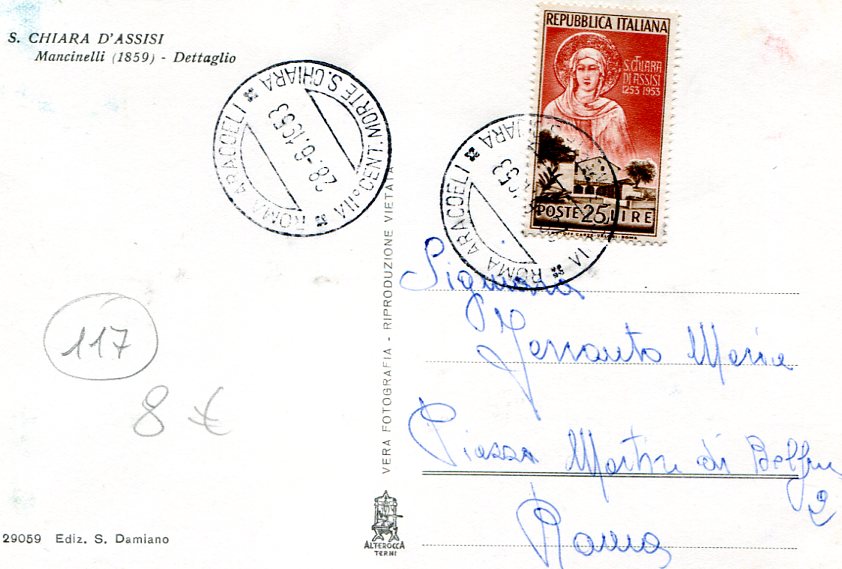 S. CHIARA D'ASSISI
Mancinelli (1859) - Dettaglio
ROMA ARACOELI * VII° CENT. MORTE S. CHIARA *
28.-6.1953
REPUBBLICA ITALIANA
S. CHIARA
DI ASSISI
1253 1953
POSTE 25 LIRE
ROMA ARACOELI * VII CHIARA *
53
VERA FOTOGRAFIA - RIPRODUZIONE VIETATA
Signora
Maria
Piazza Martiri di Belfiore
2
Roma
117
8 €
29059 Ediz. S. Damiano
ALTEROCCA
TERNI